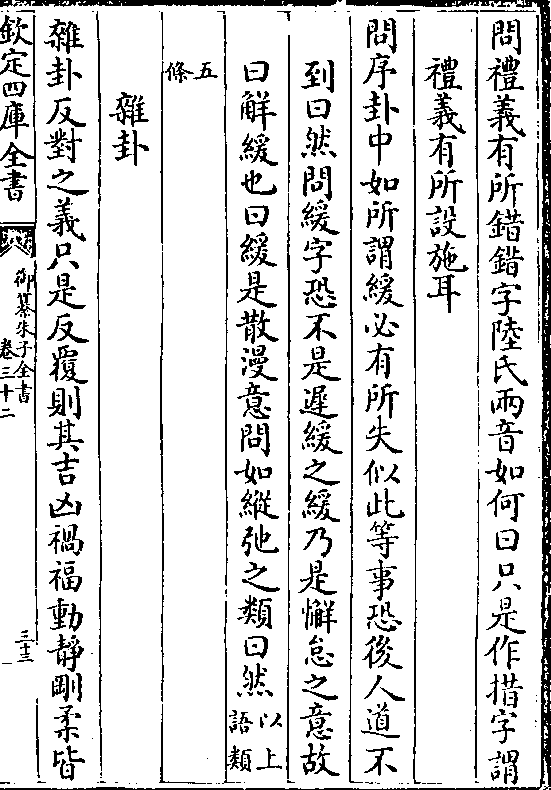 問禮義有所錯錯字陸氏兩音如何曰只是作措字謂
禮義有所設施耳
問序卦中如所謂緩必有所失似此等事恐後人道不
到曰然問緩字恐不是遲緩之緩乃是懈怠之意故
曰解緩也曰緩是散漫意問如縱弛之類曰然以上語類
五條
雜卦
雜卦反對之義只是反覆則其吉凶禍福動靜剛柔皆
欽定四庫全書
御纂朱子全書
卷三十二
三十三